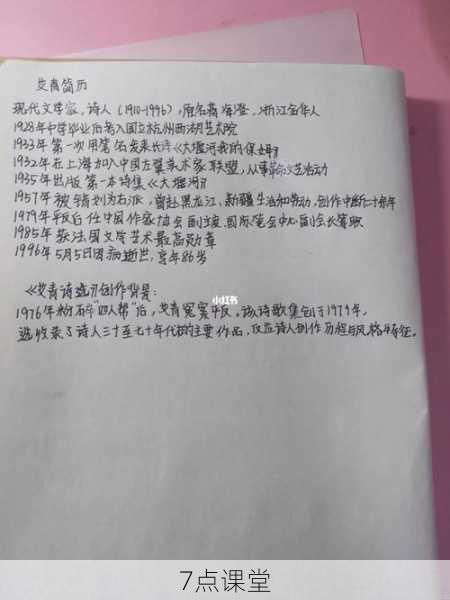 艾青简历
现代文学家,诗人(1910-1996),原名蒋海澄,浙江金华人
1928年中学毕业后考入国立杭州西湖艺术院
1933年第一次用笔名发表长诗《大堰河我的保姆》
1932年在上海加入中国左翼美术家联盟,从事革命文艺活动
1935年出版第一本诗集《大堰河》
1957年被错划为右派,曾赴黑龙江,新疆生活和劳动,创作中断二十年
1979年平反后任中国作家协会副主席,国际笔会中心副会长等职
1985年获法国文学艺术最高勋章
1996年5月5日因病逝世,享年86岁
《艾青诗选》创作背景:
1976年粉碎"四人帮"后,艾青冤案平反,该诗歌集创于1979年,
选收录了诗人三十至七十年代的主要作品,反应诗人创作历程与风格特征。
小红书
7点课堂